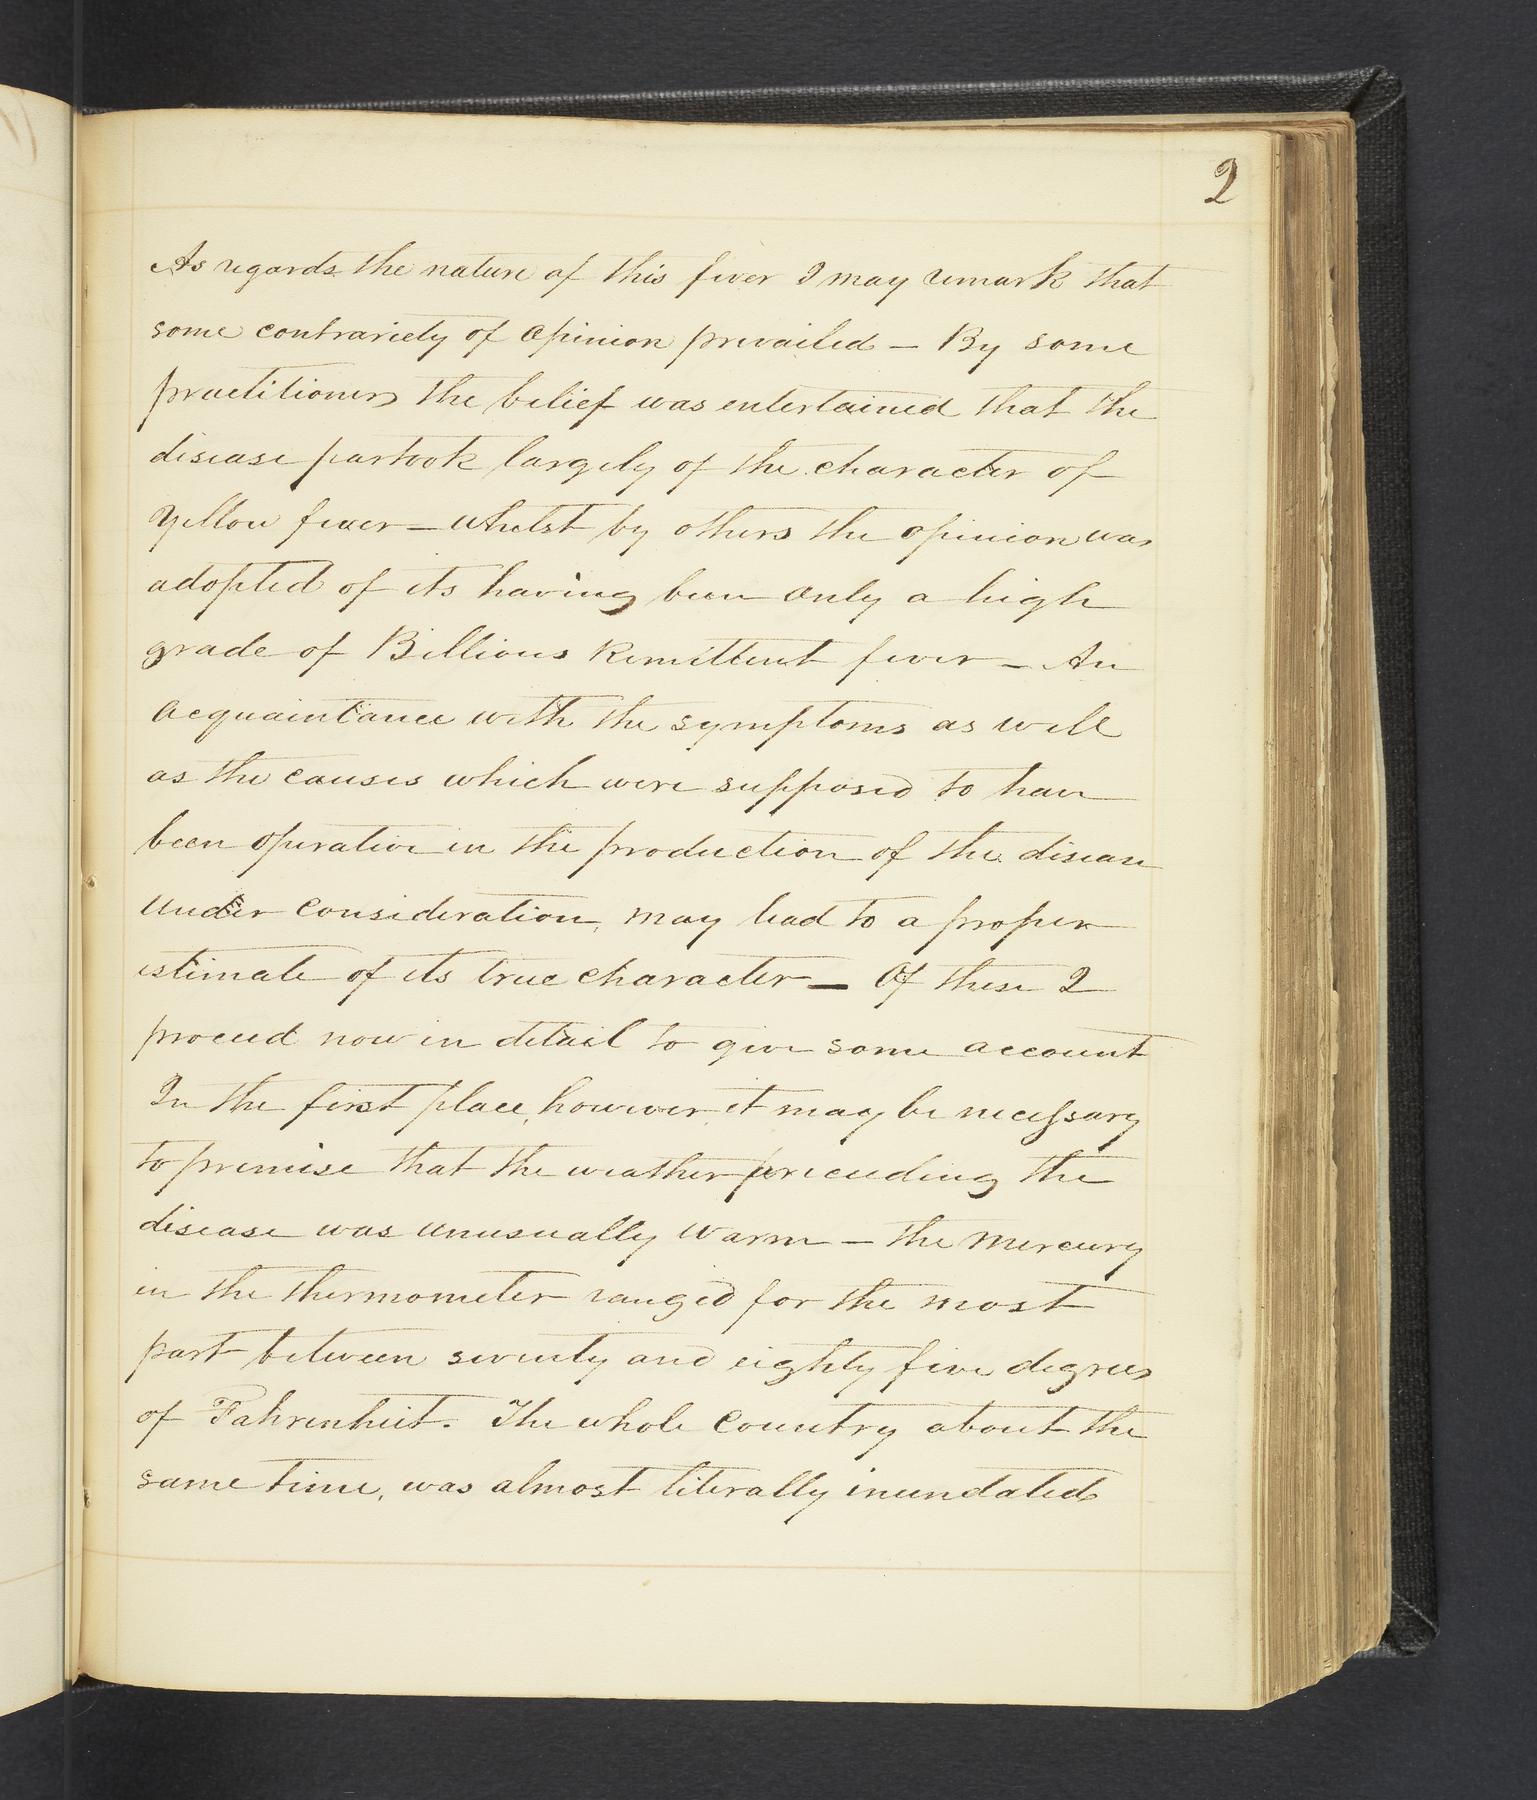 2
As regards the nature of this fever I may remark that
some contrariety of opinion prevailed — By some
practitioners the belief was entertained that the
disease partook largely of the character of
Yellow fever — whilst by others the opinion was
adopted of its having been only a high
grade of Billious Remittent fever — An
acquaintance with the symptoms as well
as the causes which were supposed to have
been operative in the production of the disease
under consideration, may lead to a proper
estimate of its true character — Of these I
proceed now in detail to give some account
In the first place, however, it may be necessary
to premise that the weather preceeding the
disease was unusually warm — the mercury
in the thermometer ranged for the most
part between seventy and eighty five degrees
of Fahrenheit. The whole country about the
same time, was almost literally inundated